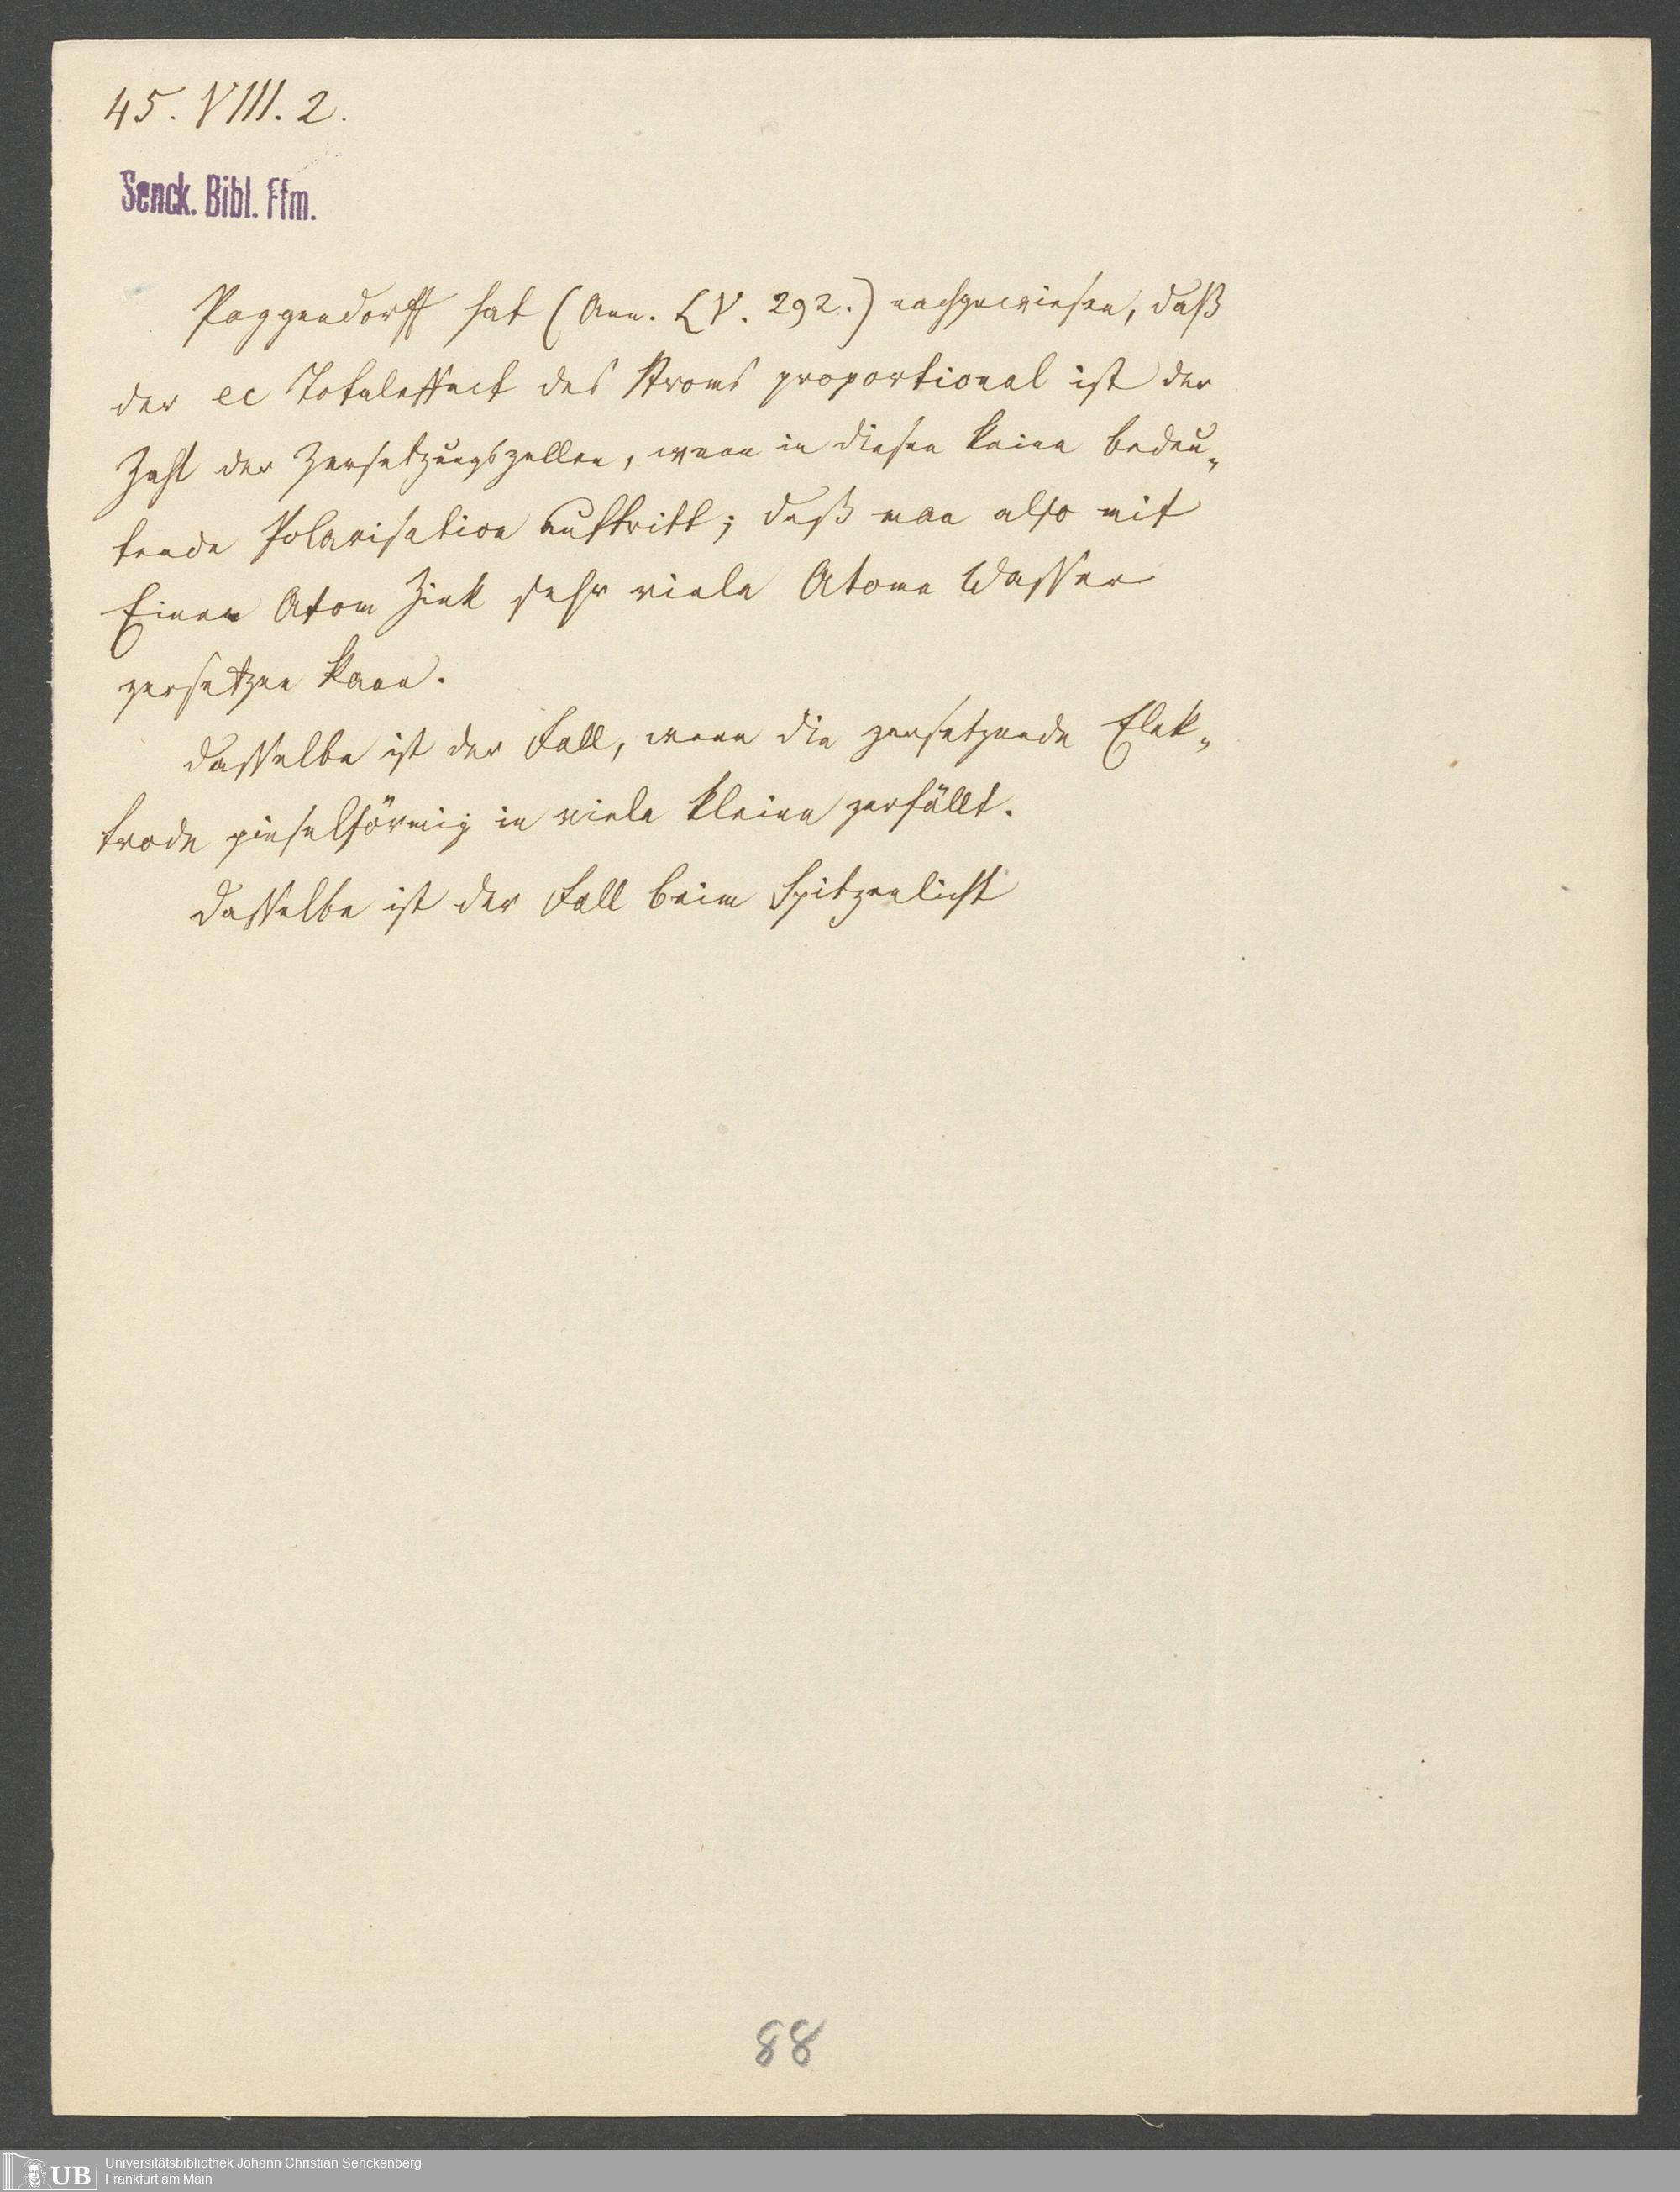 45. VIII. 2.
Senck. Bibl. Ffm.
Poggendorff hat (Ann. LV. 292.) nachgewiesen, daß
der ec Totaleffect des Stroms proportional ist der
Zahl der Zersetzungszellen, wenn in diesen keine bedeu„
tende Polarisation auftritt; daß man also mit
Einem Atom Zink sehr viele Atome Wasser
zersetzen kann.
Dasselbe ist der Fall, wenn die zersetzende Elek„
trode pinselförmig in viele kleine zerfällt.
Dasselbe ist der Fall beim Spitzenlicht
88
UB
Universitätsbibliothek Johann Christian Senckenberg
Frankfurt am Main